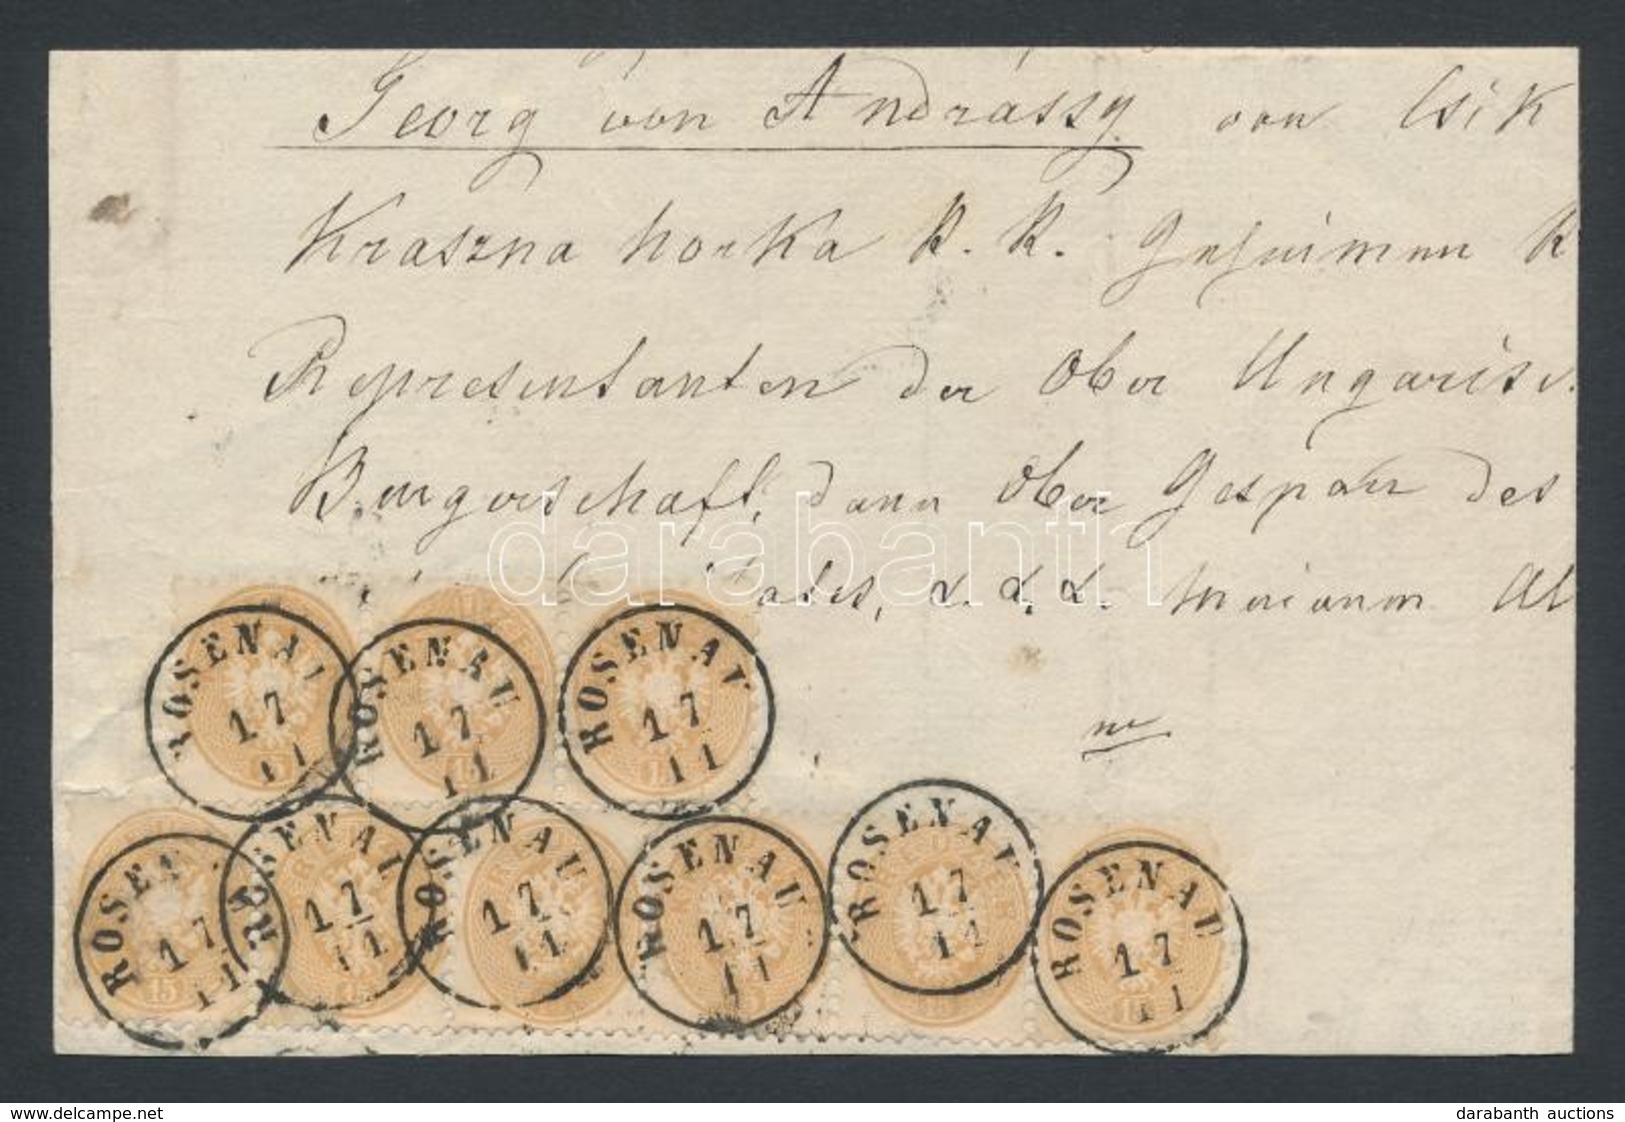 Georg von Andrássy von Csik
Kraszna horka K. K. Geheimen R
Representanten der Ober Ungarisc
Burgerschaft, dann Ober Gespan des
ates, &. &. &. meinem Al
darabanth
ROSENAU 17 11
ROSENAU 17 11
ROSENAU 17 11
ROSENAU 17 11
ROSENAU 17 11
ROSENAU 17 11
ROSENAU 17 11
ROSENAU 17 11
ROSENAU 17 11
www.delcampe.net
darabanth auctions